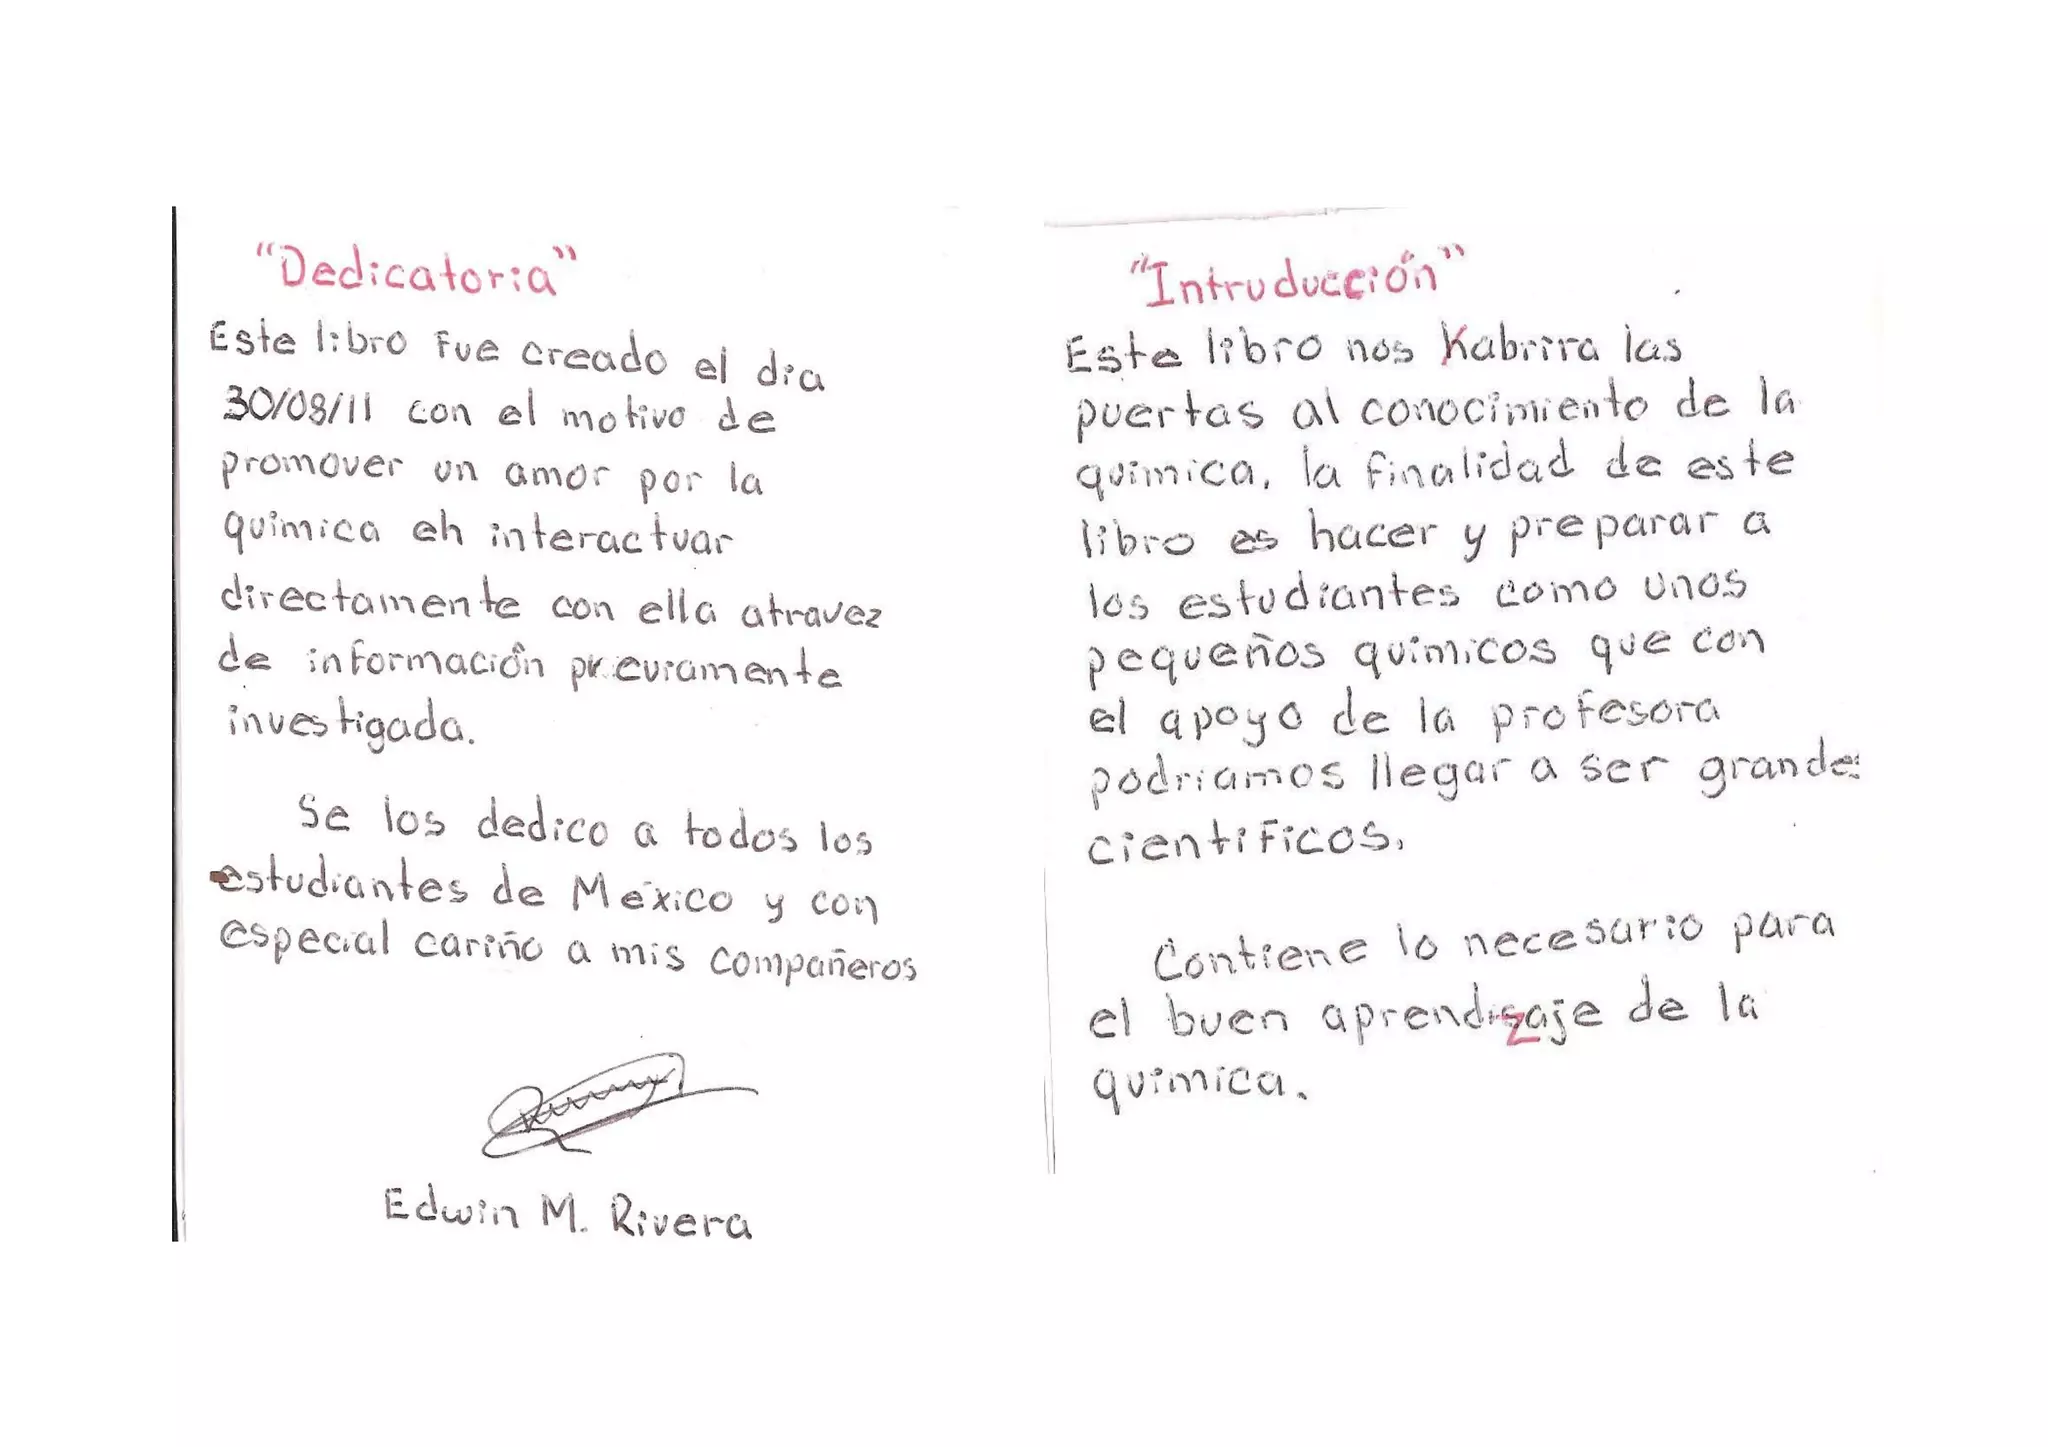 "Dedicatoria"
Este libro fue creado el dia
30/08/11 con el motivo de
promover un amor por la
quimica eh interactuar
directamente con ella atravez
de información
investigada.
Se los dedico a todos los
estudiantes de México y con
especial cariño a mis compañeros
Edwin M. Rivera
"Intruducción"
Este libro nos habrira las
puertas al conocimiento de la
quimica, la finalidad de este
libro es hacer y preparar a
los estudiantes como unos
pequeños quimicos que con
el apoyo de la profesora
podriamos llegar a ser grandes
cientificos,
Contiene lo necesario para
el buen aprendizaje de la
quimica.